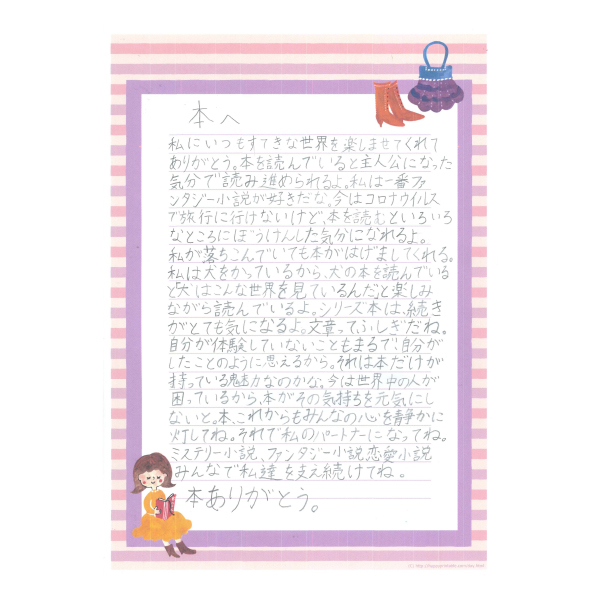 本へ
私にいつもすてきな世界を楽しませてくれて
ありがとう。本を読んでいると主人公になった
気分で読み進められるよ。私は一番ファ
ンタジー小説が好きだな。今はコロナウイルス
で旅行に行けないけど、本を読むといろいろ
なところにぼうけんした気分になれるよ。
私が落ちこんでいても本がはげましてくれる。
私は犬をかっているから、犬の本を読んでいる
と「犬はこんな世界を見ているんだ」と楽しみ
ながら読んでいるよ。シリーズ本は、続き
がとても気になるよ。文章ってふしぎだね。
自分が体験していないこともまるで自分が
したことのように思えるから。それは本だけが
持っている魅力なのかな。今は世界中の人が
困っているから、本がその気持ちを元気にし
ないと。本、これからもみんなの心を静かに
灯してね。それで私のパートナーになってね。
ミステリー小説、ファンタジー小説恋愛小説
みんなで私達を支え続けてね。
本ありがとう。